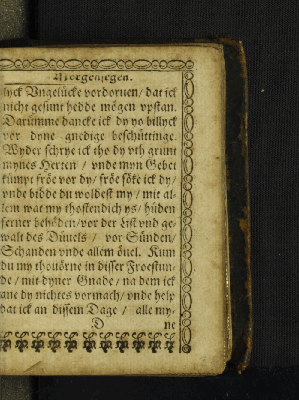 Morgensegen.
lyck Vngelücke vordoruen/ dat ick
nicht gesunt hedde mögen vpstan.
Darümme dancke ick dy yo billyck
vor dyne gnedige beschüttinge.
Wyder schrye ick tho dy vth grunt
mynes Herten / vnde myn Gebet
kümpt fröe vor dy/ fröe söke ick dy/
vnde bidde du woldest my / mit al-
lem wat my thostendich ys/ hüden
ferner behöden/ vor der List vnd ge-
walt des Düuels / vor Sünden/
Schanden vnde allem öuel. Kum
du my thouörne in disser Froestun-
de / mit dyner Gnade/ na dem ick
ane dy nichtes vormach/ vnde help
dat ick an dissem Dage / alle my-
D ne